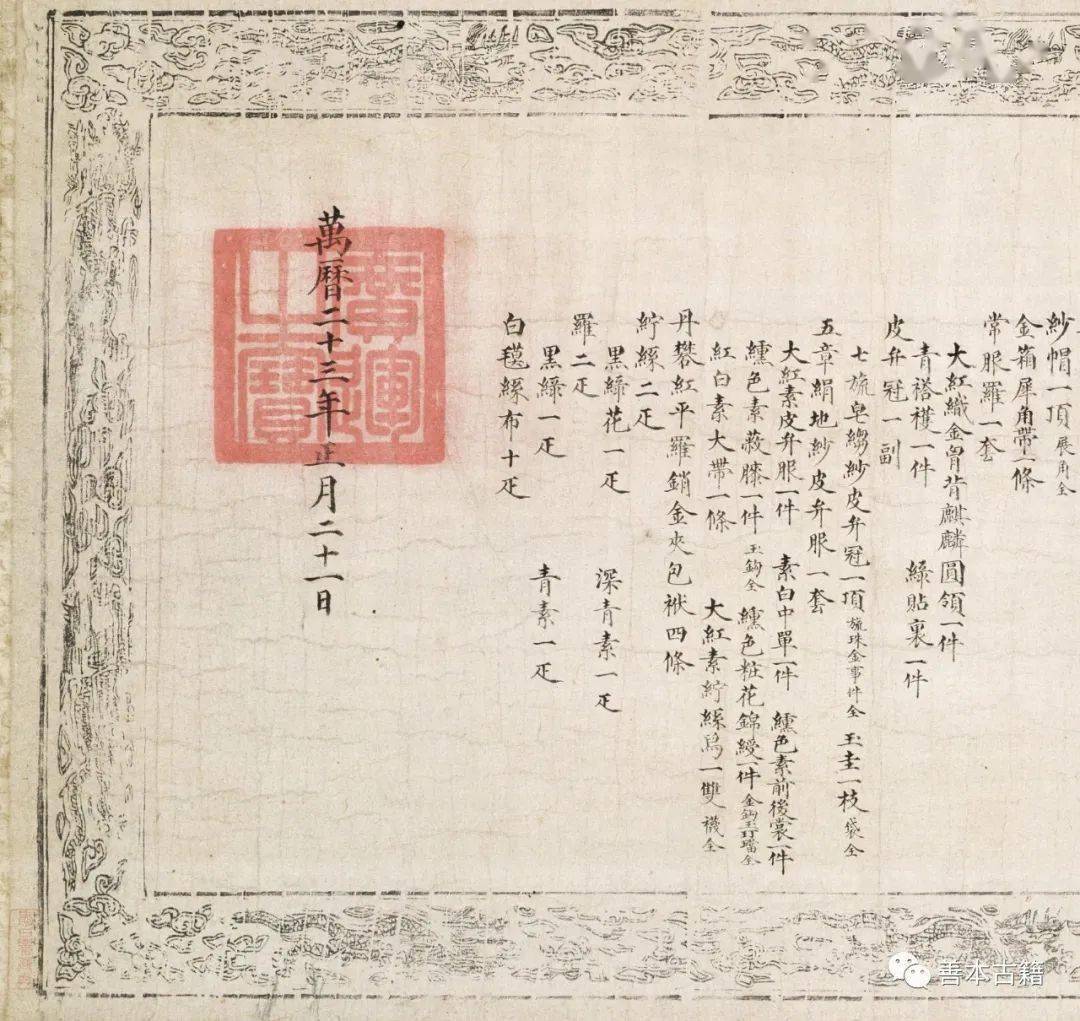 紗帽一頂展角全
金箱犀角帶一條
常服羅一套
大紅織金胷背麒麟圓領一件
青褡𧞤一件 綠貼裏一件
皮弁冠一副
七旒皂縐紗皮弁冠一頂旒珠金事件全 玉圭一枝袋全
五章絹地紗皮弁服一套
大紅素皮弁服一件 素白中單一件 纁色素前後裳一件
纁色素蔽膝一件玉鈎全 纁色粧花錦綬一件金鈎玉玎璫全
紅白素大帶一條 大紅素紵絲舄一雙襪全
丹礬紅平羅銷金夾包袱四條
紵絲二疋
黑綠花一疋 深青素一疋
羅二疋
黑綠一疋 青素一疋
白氁絲布十疋
萬曆二十三年正月二十一日
善本古籍